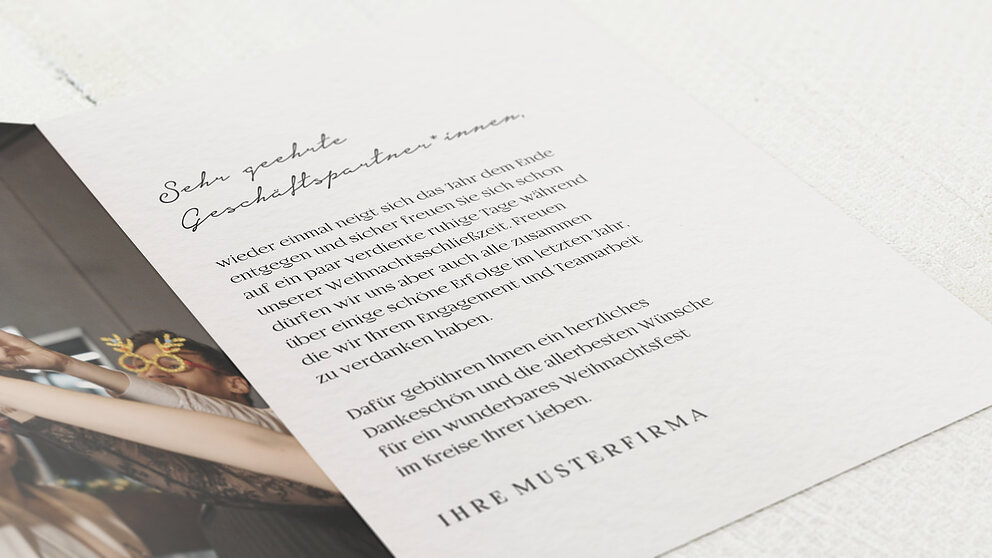 Sehr geehrte
Geschäftspartner*innen,
wieder einmal neigt sich das Jahr dem Ende
entgegen und sicher freuen Sie sich schon
auf ein paar verdiente ruhige Tage während
unserer Weihnachtsschließzeit. Freuen
dürfen wir uns aber auch alle zusammen
über einige schöne Erfolge im letzten Jahr,
die wir Ihrem Engagement und Teamarbeit
zu verdanken haben.
Dafür gebühren Ihnen ein herzliches
Dankeschön und die allerbesten Wünsche
für ein wunderbares Weihnachtsfest
im Kreise Ihrer Lieben.
IHRE MUSTERFIRMA